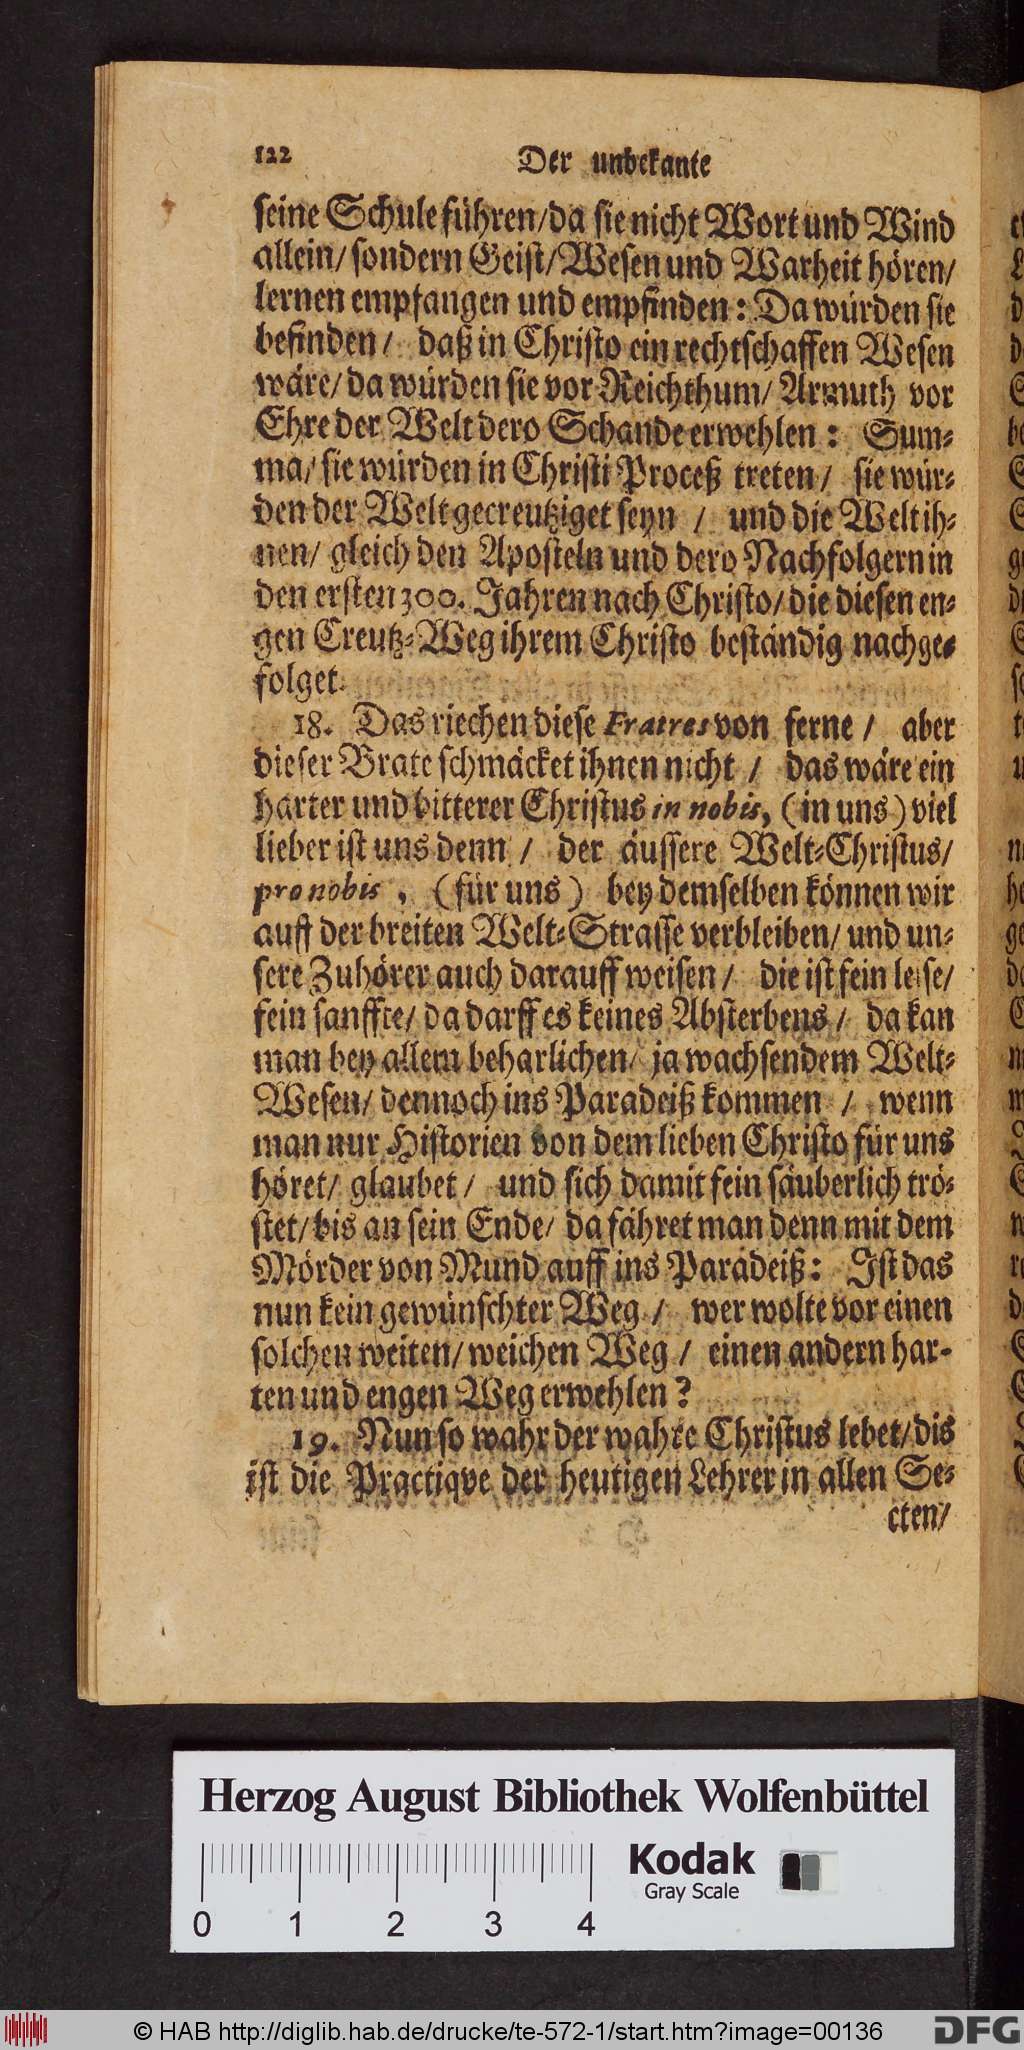 122
Der unbekante
seine Schule führen/da sie nicht Wort und Wind
allein/ sondern Geist/ Wesen und Warheit hören/
lernen empfangen und empfinden: Da würden sie
befinden/ daß in Christo ein rechtschaffen Wesen
wäre/ da würden sie vor Reichthum/ Armuth vor
Ehre der Welt dero Schande erwehlen: Sum-
ma/ sie würden in Christi Proceß treten/ sie wür-
den der Welt gecreutziget seyn / und die Welt ih-
nen/ gleich den Aposteln und dero Nachfolgern in
den ersten 300. Jahren nach Christo/ die diesen en-
gen Creutz-Weg ihrem Christo beständig nachge-
folget.
18. Das riechen diese Fratres von ferne / aber
dieser Brate schmäcket ihnen nicht / das wäre ein
harter und bitterer Christus in nobis, (in uns) viel
lieber ist uns denn / der äussere Welt-Christus/
pro nobis , (für uns) bey demselben können wir
auff der breiten Welt-Strasse verbleiben/ und un-
sere Zuhörer auch darauff weisen / die ist fein leise/
fein sanffte/ da darff es keines Absterbens / da kan
man bey allem beharlichen/ ja wachsendem Welt-
Wesen/ dennoch ins Paradeiß kommen / wenn
man nur Historien von dem lieben Christo für uns
höret/ glaubet / und sich damit fein säuberlich trö-
stet/ bis an sein Ende/ da fähret man denn mit dem
Mörder von Mund auff ins Paradeiß: Ist das
nun kein gewünschter Weg / wer wolte vor einen
solchen weiten/ weichen Weg / einen andern har-
ten und engen Weg erwehlen?
19. Nun so wahr der wahre Christus lebet/ dis
ist die Practiqve der heutigen Lehrer in allen Se-
cten/
Herzog August Bibliothek Wolfenbüttel
Kodak
Gray Scale
0 1 2 3 4
© HAB http://diglib.hab.de/drucke/te-572-1/start.htm?image=00136
DFG